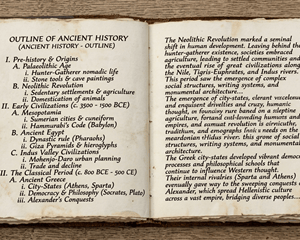 OUTLINE OF ANCIENT HISTORY
(ANCIENT HISTORY - OUTLINE)
I. Pre-history & Origins
A. Palaeolithic Age
i. Hunter-Gatherer nomadic life
ii. Stone tools & cave paintings
B. Neolithic Revolution
i. Sedentary settlements & agriculture
ii. Domestication of animals
II. Early Civilizations (c. 3500 - 500 BCE)
A. Mesopotamia
i. Sumerian cities & cuneiform
ii. Hammurabi's Code (Babylon)
B. Ancient Egypt
i. Dynastic rule (Pharaohs)
ii. Giza Pyramids & hieroglyphs
C. Indus Valley Civilizations
i. Mohenjo-Daro urban planning
ii. Trade and decline
III. The Classical Period (c. 800 BCE - 500 CE)
A. Ancient Greece
i. City-States (Athens, Sparta)
ii. Democracy & Philosophy (Socrates, Plato)
iii. Alexander's Conquests
The Neolithic Revolution marked a seminal
shift in human development. Leaving behind the
hunter-gatherer existence, societies embraced
agriculture, leading to settled communities and
the eventual rise of great civilizations along
the Nile, Tigris-Euphrates, and Indus rivers.
This period saw the emergence of complex
social structures, writing systems, and
monumental architecture...
The emergence of city-states, vibrant
and exquisient divinities and crazy, humanic
thought, in runs hared on a
agriculture, forand cast-lowering humours and
empires, and eomaut revolution is
traditium, and emographs needs on the
this grow of social
structures, writing systems, and monumental
architecture.
The Greek city-states developed vibrant democratic
processes and philosophical schools that
continue to influence Western thought.
Their internal rivalries (Sparta and Athens)
eventually gave way to the sweeping conquests of
Alexander, which spread Hellenistic culture
across a vast empire, bridging diverse peoples...